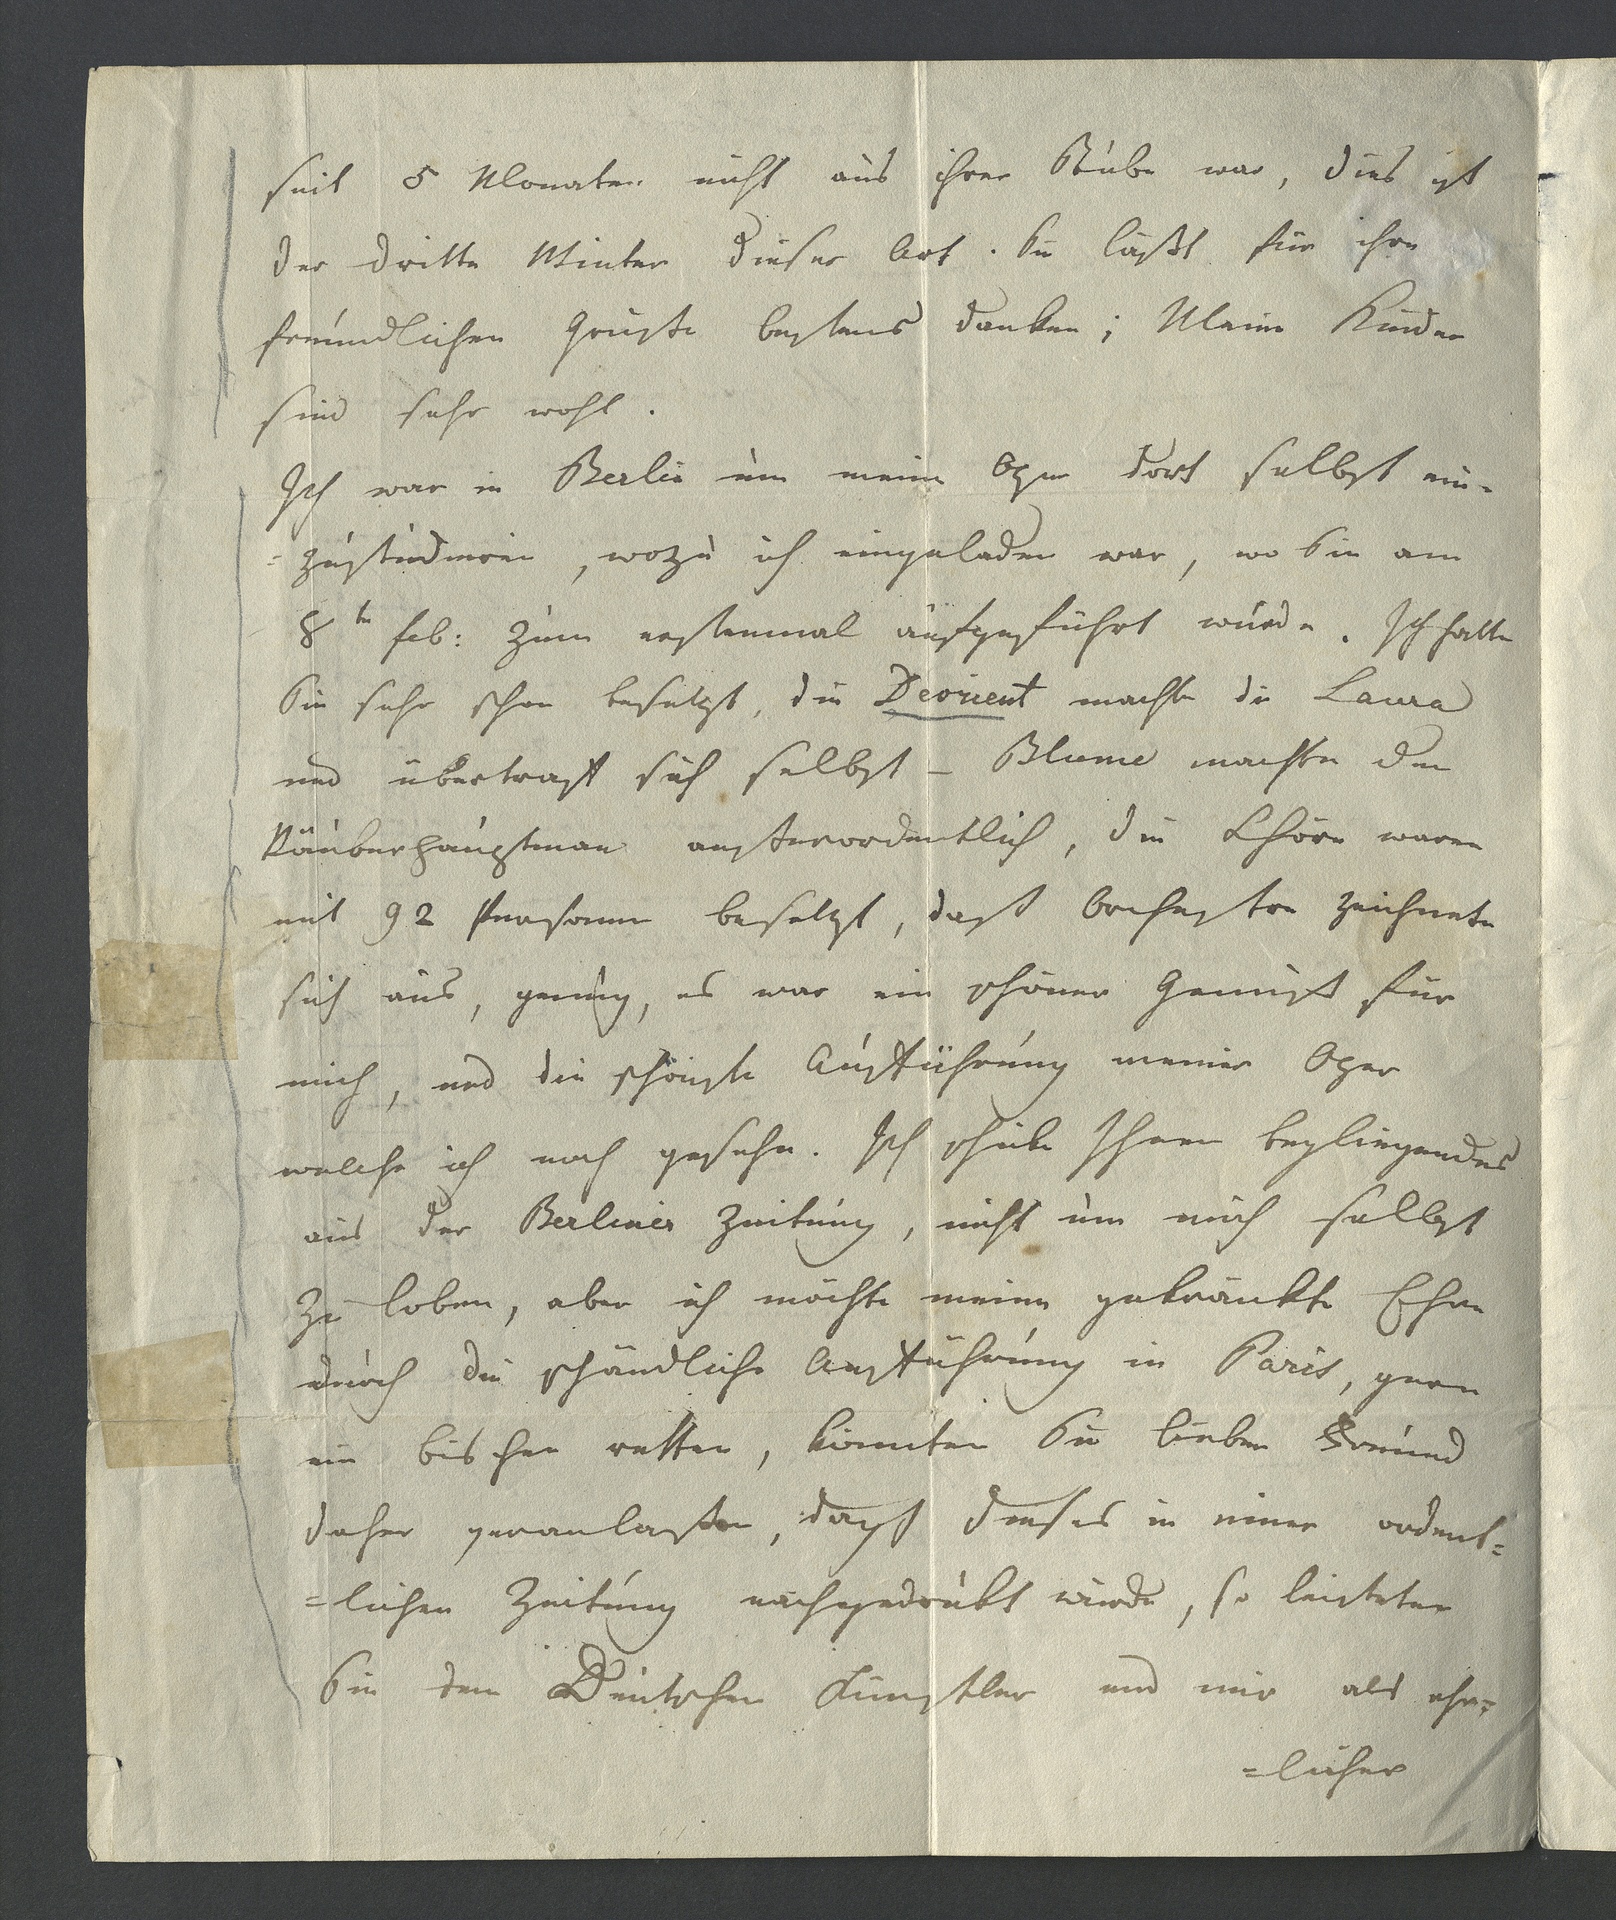 seit 5 Monaten nicht aus ihrer Stube war, dies ist
der dritte Winter dieser Art. Sie läßt für ihre
freundlichen Grüße bestens danken; Meine Kinder
sind sehr wohl.
Ich war in Berlin um meine Oper dort selbst ein-
=zustudieren, wozu ich eingeladen war, wo Sie am
8ten Feb: zum erstenmal aufgeführt wurde. Ich hatte
Sie sehr schön besetzt, die Devrient machte die Laura
und übertraft sich selbst – Blume machte den
Räuberhauptman ausserordentlich, die Chöre waren
mit 92 Personen besetzt, dass Orchester zeichnete
sich aus, genug, es war ein schöner Genuß für
mich, und die schönste Aufführung meiner Oper
welche ich noch gesehn. Ich schicke Ihnen beyliegendes
aus der Berliner Zeitung, nicht um mich selbst
zu loben, aber ich möchte meine gekränkte Ehre
durch die schändliche Aufführung in Paris, gern
ein bischen retten, könnten Sie lieber Freund
daher veranlassen, dass dieses in einer ordent=
=lichen Zeitung nachgedrukt würde, so leisteten
Sie dem Deutschen Künstler und mir als ehr=
=licher